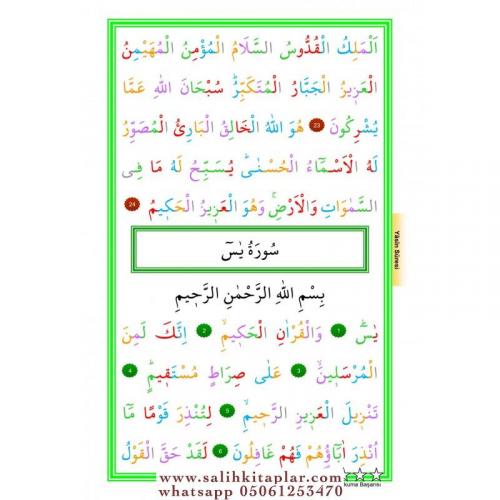 اَلْمَلِكُ الْقُدُّوسُ السَّلَامُ الْمُؤْمِنُ الْمُهَيْمِنُ
الْعَزِيزُ الْجَبَّارُ الْمُتَكَبِّرُۜ سُبْحَانَ اللّٰهِ عَمَّا
يُشْرِكُونَ 23 هُوَ اللّٰهُ الْخَالِقُ الْبَارِئُ الْمُصَوِّرُ
لَهُ الْاَسْمَٓاءُ الْحُسْنٰىۜ يُسَبِّحُ لَهُ مَا فِى
السَّمٰوَاتِ وَالْاَرْضِۚ وَهُوَ الْعَزِيزُ الْحَكِيمُ 24
سُورَةُ يٰسٓ
Yâsîn Sûresi
بِسْمِ اللّٰهِ الرَّحْمٰنِ الرَّحِيمِ
يٰسٓۜ 1 وَالْقُرْاٰنِ الْحَكِيمِۙ 2 اِنَّكَ لَمِنَ
الْمُرْسَلِينَۙ 3 عَلٰى صِرَاطٍ مُسْتَقِيمٍۜ 4
تَنْزِيلَ الْعَزِيزِ الرَّحِيمِۙ 5 لِتُنْذِرَ قَوْمًا مَٓا
اُنْذِرَ اٰبَٓاؤُ۬هُمْ فَهُمْ غَافِلُونَ 6 لَقَدْ حَقَّ الْقَوْلُ
www.salihkitaplar.com
whatsapp 05061253470
kuma Başarısı